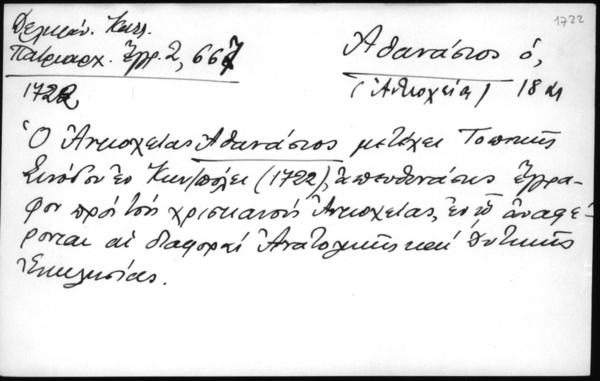 1722
Δελικάν. Κων.
Πατριαρχ. Ἔγγρ. 2, 667
Ἀθανάσιος ὁ,
1722
(Ἀντιοχεία) 18 αι
Ὁ Ἀντιοχείας Ἀθανάσιος μετέχει Τοπικῆς
Συνόδου ἐν Κων/πόλει (1722), ἀπευθυνάσης ἔγγρα-
φον πρὸς τοὺς χριστιανοὺς Ἀντιοχείας, ἐν ᾧ ἀναφέ-
ρονται αἱ διαφοραὶ Ἀνατολικῆς καὶ Δυτικῆς
Ἐκκλησίας.